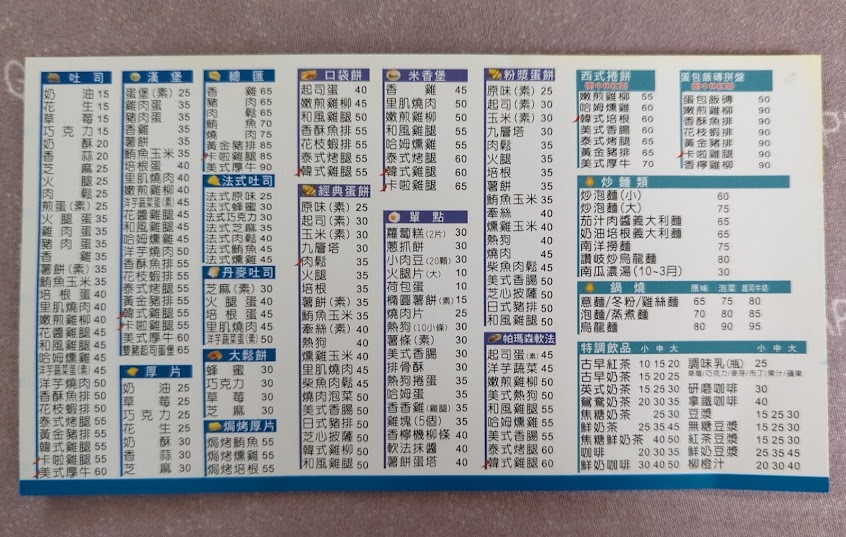 吐司
奶油 15
花生 15
草莓 15
巧克力 15
奶酥 20
香蒜 20
芝麻 25
火腿 25
肉鬆 25
煎蛋(素) 25
火腿蛋 30
雞肉蛋 35
豬肉蛋 35
香雞 35
薯餅(素) 35
鮪魚玉米 35
培根蛋 40
里肌燒肉 40
嫩煎雞柳 40
花醬雞蛋 45
和風雞腿 45
哈姆燻雞 45
洋芋燒肉 50
香酥魚排 50
花枝蝦排 50
泰式烤腿 50
黃金豬排 55
韓式雞腿 55
卡啦雞腿 55
美式厚牛 60
漢堡
蛋堡(素) 25
雞肉蛋 35
豬肉蛋 35
香雞 35
薯餅 35
鮪魚玉米 35
培根蛋 40
里肌燒肉 40
嫩煎雞柳 40
花醬雞蛋 45
和風雞腿 45
哈姆燻雞 45
洋芋燒肉 50
香酥魚排 50
花枝蝦排 50
泰式烤腿 55
黃金豬排 55
韓式雞腿 55
卡啦雞腿 55
美式厚牛 60
雙豬起司蛋堡 65
厚片
奶油 25
草莓 25
巧克力 25
花生 25
奶酥 30
香蒜 30
芝麻 30
總匯
香雞 65
豬肉 65
肉鬆 65
鮪魚 70
燒肉 75
黃金豬排 85
卡啦雞腿 85
美式厚牛 90
法式吐司
法式原味 25
法式蜂蜜 30
法式巧克力 30
法式芝麻 35
法式肉鬆 40
法式鮪魚 45
法式燻雞 45
丹麥吐司
芝麻(素) 30
火腿蛋 40
培根蛋 45
里肌燒肉 50
大鬆餅
蜂蜜 30
巧克力 30
草莓 30
芝麻 30
焗烤厚片
焗烤鮪魚 55
焗烤燻雞 55
焗烤培根 55
口袋餅
起司蛋 40
嫩煎雞柳 45
和風雞腿 50
香酥魚排 55
花枝蝦排 55
泰式烤腿 55
韓式雞腿 55
經典蛋餅
原味(素) 25
起司(素) 30
玉米(素) 30
九層塔 30
肉鬆 35
火腿 35
培根 35
薯餅(素) 35
鮪魚玉米 35
牽絲(素) 40
熱狗 40
燻雞玉米 40
里肌燒肉 45
柴魚肉鬆 45
燒肉泡菜 50
美式香腸 50
日式豬排 50
芝心披薩 50
韓式雞柳 50
和風雞腿 50
米香堡
香雞 45
里肌燒肉 50
嫩煎雞柳 50
和風雞腿 55
哈姆燻雞 55
泰式烤腿 60
韓式雞腿 60
卡啦雞腿 65
單點
蘿蔔糕(2片) 30
蔥抓餅 30
小肉豆(20顆) 30
火腿片(大) 10
荷包蛋 10
橢圓薯餅(素) 15
燒肉片 25
熱狗(10小條) 30
薯條(素) 30
美式香腸 30
排骨酥 30
熱狗捲蛋 30
哈姆蛋 30
香香雞(雞腿) 35
雞塊(5個) 35
香檸機柳條 40
軟法抹醬 40
薯餅蛋塔 40
粉漿蛋餅
原味(素) 25
起司(素) 30
玉米(素) 30
九層塔 30
肉鬆 35
火腿 35
培根 35
薯餅 35
鮪魚玉米 35
牽絲 40
燻雞玉米 40
熱狗 40
燒肉 45
柴魚肉鬆 45
美式香腸 50
芝心披薩 50
日式豬排 50
和風雞腿 50
帕瑪森軟法
起司蛋(素) 45
洋芋蔬菜 45
嫩煎雞柳 50
美式熱狗 50
和風雞腿 55
哈姆燻雞 55
美式香腸 55
泰式烤腿 60
韓式雞腿 60
西式捲餅
嫩煎雞柳 55
哈姆燻雞 60
韓式培根 60
美式香腸 60
泰式烤腿 65
黃金豬排 65
美式厚牛 70
蛋包飯磚拼盤
蛋包飯磚 50
嫩煎雞柳 90
香酥魚排 90
花枝蝦排 90
黃金豬排 90
卡啦雞腿 90
香檸雞柳 90
炒麵類
炒泡麵(小) 60
炒泡麵(大) 75
茄汁肉醬義大利麵 65
奶油培根義大利麵 65
南洋撈麵 75
讚岐炒烏龍麵 80
南瓜濃湯(10~3月) 30
鍋燒 原味 泡菜 壽司牛奶
意麵/冬粉/雞絲麵 65 75 80
泡麵/蒸煮麵 70 80 85
烏龍麵 80 90 95
特調飲品 小 中 大 小 中 大
古早紅茶 10 15 20 調味乳(瓶) 25
古早奶茶 15 20 25 草莓/巧克力/麥芽/布丁/果汁/蘋果
英式奶茶 15 25 30 研磨咖啡 30
鴛鴦奶茶 20 30 35 拿鐵咖啡 40
焦糖奶茶 25 30 豆漿 15 25 30
鮮奶茶 25 35 無糖豆漿 15 25 30
焦糖鮮奶茶 40 50 紅茶豆漿 15 25 30
咖啡 20 30 35 鮮奶豆漿 25 35 45
鮮奶咖啡 30 40 50 柳橙汁 20 30 40